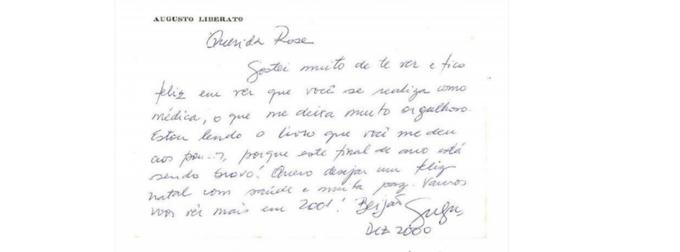 AUGUSTO LIBERATO
Querida Rose
Gostei muito de te ver e fico
feliz em ver que você se realiza como
médica, o que me deixa muito orgulhoso.
Estou lendo o livro que você me deu
aos pou..., porque este final de ano está
sendo bravo! Quero desejar um feliz
natal com saúde e muita paz. Vamos
nos ver mais em 2001! Beijão Gugu
DEZ 2000